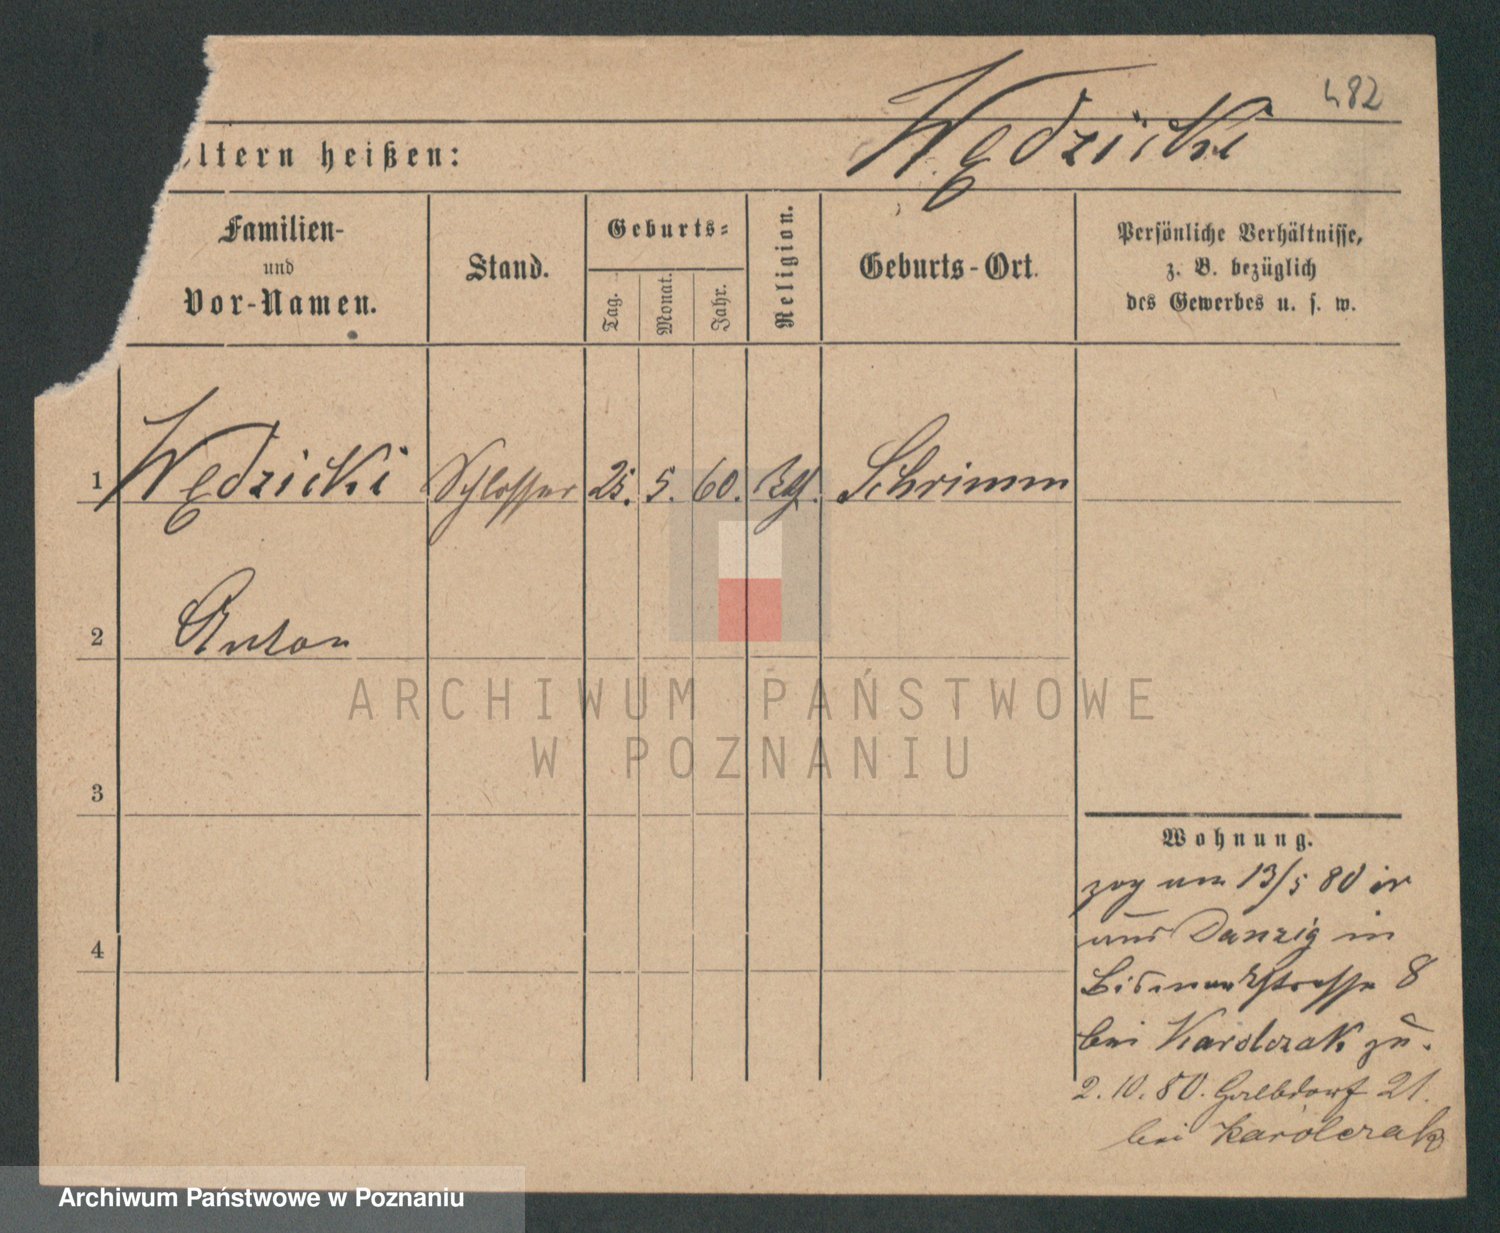 482
Wędzicki
ltern heißen:
Familien-
und
Vor-Namen.
Stand.
Geburts-
Tag.
Monat.
Jahr.
Religion.
Geburts-Ort.
Persönliche Verhältnisse,
z. B. bezüglich
des Gewerbes u. s. w.
1 Wędzicki Schlosser 25. 5. 60. Schrimm
2 Anton
3
4
ARCHIWUM PAŃSTWOWE
W POZNANIU
Wohnung.
zog am 13/5 80
aus Danzig in
Bismarckstrasse 8
bei Karolczak zu.
2.10.80. 21.
bei Karolczak
Archiwum Państwowe w Poznaniu